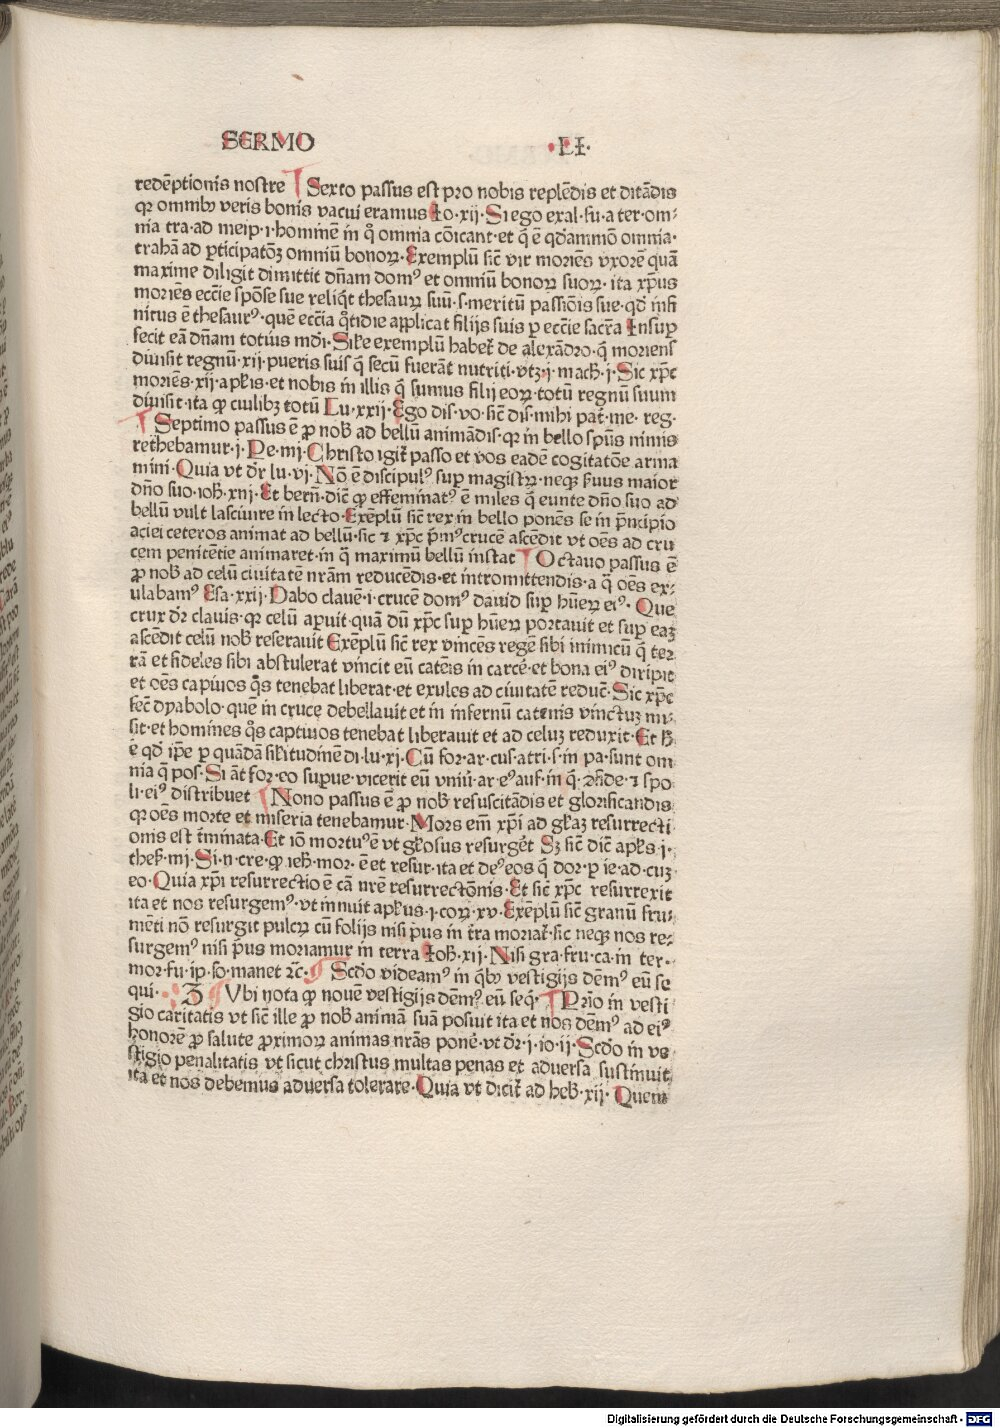 SERMO ·LI·
redēptionis nostre ¶ Sexto passus est pro nobis replēdis et ditādis
qꝛ omnibꝰ veris bonis vacui eramus Io·xij·Si ego exal·fu·a ter·om⸗
nia tra·ad meip·i·hominē in q̊ omnia cōicant·et q̄ ē qd̄ammō omnia·
trahā ad p̱ticipatōꝫ omniū bonoꝝ·Exemplū sic̄ vir moriēs vxorē quā
maxime diligit dimittit dn̄am domꝰ et omniū bonoꝝ suoꝝ· ita xp̄us
moriēs ecc̄ie spōse sue reliq̇t thesauꝝ suū·s·meritū passiōis sue·qd̄ infi
nitus ē thesaurꝰ·quē ecc̄ia q̊tidie applicat filijs suis p̱ ecc̄ie sacr̄a Insup̱
fecit eā dn̄am totius mdi·Sil̄e exemplū habet̄ de alexādro·q̇ moriens
diuisit regnū·xij·pueris suis q̇ secū fuerāt nutriti·vtꝫ·j·mach̄·j·Sic xp̄c
moriēs·xij·apl̄is·et nobis in illis q̇ sumus filij eoꝝ·totū regnū suum
diuisit·ita ꝙ cuilibꝫ totū Lu·xxij·Ego dis·vo·sic̄ dis·mihi pat̄·me·reg·
¶ Septimo passus ē ꝓ nob̄ ad bellū animādis·qꝛ in bello sp̄us nimis
rethebamur·j·Pe·iiij·Christo igit̄ passo et vos eadē cogitatōe arma
mini·Quia vt dr̄ lu·vj·Nō ē discipulꝰ sup̱ magistꝝ·neqꝫ ẜuus maior
dn̄o suo·ioh̄·xiij·Et bern̄·dic̄ ꝙ effeminatꝰ ē miles q̇ eunte dn̄o suo ad
bellū vult lasciuire in lecto·Exēplū sic̄ rex in bello ponēs se in p̄ncipio
aciei ceteros animat ad bellū·sic ⁊ xp̄c p̄mꝰ crucē ascēdit vt oēs ad cru
cem penitētie animaret·in q̄ maximū bellū instat ¶ Octauo passus ē
ꝓ nob̄ ad celū ciuitatē nr̄am reducēdis·et intromittendis·a q̄ oēs ex⸗
ulabamꝰ Esa·xxij·Dabo clauē·i·crucē domꝰ dauid sup̱ hūeꝝ eiꝰ· Que
crux dr̄ clauis·qꝛ celū aperuit·quā dū xp̄c sup̱ hūeꝝ portauit et sup̱ eaꝫ
ascēdit celū nob̄ reserauit Exēplū sic̄ rex vincēs regē sibi inimicū q̇ ter⸗
rā et fideles sibi abstulerat vincit eū catēis in carcē·et bona eiꝰ diripit
et oēs capiuos q̊s tenebat liberat·et exules ad ciuitatē reduc̄·Sic xp̄c
fec̄ dyabolo·quē in cruce debellauit et in infernū catenis vinctuꝫ mi⸗
sit·et homines q̊s captiuos tenebat liberauit et ad celuꝫ reduxit·Et h̄
ē qd̄ ip̄e p̱ quādā sil̄itudinē di·lu·xj·Cū for·ar·cus·atri·s·in pa·sunt om
nia q̄ pos·Si āt for·eo supue·vicerit eū vniū·ar·eꝰ auf·in q̇· ꝯfide·⁊ spo
li·eiꝰ distribuet ¶ Nono passus ē ꝓ nob̄ resuscitādis et glorificandis
qꝛ oēs morte et miseria tenebamur·Mors em̄ xp̄i ad gl̄iaꝫ resurrecti
onis est t̄minata·Et iō mortuꝰ ē vt gl̄iosus resurget̄ Sꝫ sic̄ dic̄ apl̄s j·
thes̄·iiij·Si·n·cre·ꝙ ieh̄·mor·ē et resur·ita et deꝰ eos q̇ dor·p̱ ie·ad·cuꝫ
eo·Quia xp̄i resurrectio ē cā nr̄e resurrectōnis·Et sic̄ xp̄c resurrexit
ita et nos resurgemꝰ·vt innuit apl̄us·j·coꝝ·xv·Exēplū sic̄ granū fru⸗
mēti nō resurgit pulcꝝ cū folijs nisi p̄us in t̄ra moriat̄·sic neqꝫ nos re⸗
surgemꝰ nisi p̄us moriamur in terra Ioh̄·xij·Nisi gra·fru·ca·in ter·
mor·fu·ip·so·manet ⁊c̄·¶ Scd̄o videamꝰ in q̇bꝰ vestigijs dēmꝰ eū se
qui· Z ¶ Vbi nota ꝙ nouē vestigijs dēmꝰ eū seq̇·¶ Pr̄io in vesti
gio caritatis vt sic̄ ille ꝓ nob̄ animā suā posuit ita et nos dēmꝰ ad eiꝰ
honorē ꝓ salute ꝓximoꝝ animas nr̄as ponē·vt dr̄·j·io·ij·Scd̄o in ve
stigio penalitatis vt sicut christus multas penas et aduersa sustinuit
ita et nos debemus aduersa tolerare·Quia vt dicit̄ ad heb̄·xij· Quem
Digitalisierung gefördert durch die Deutsche Forschungsgemeinschaft - DFG